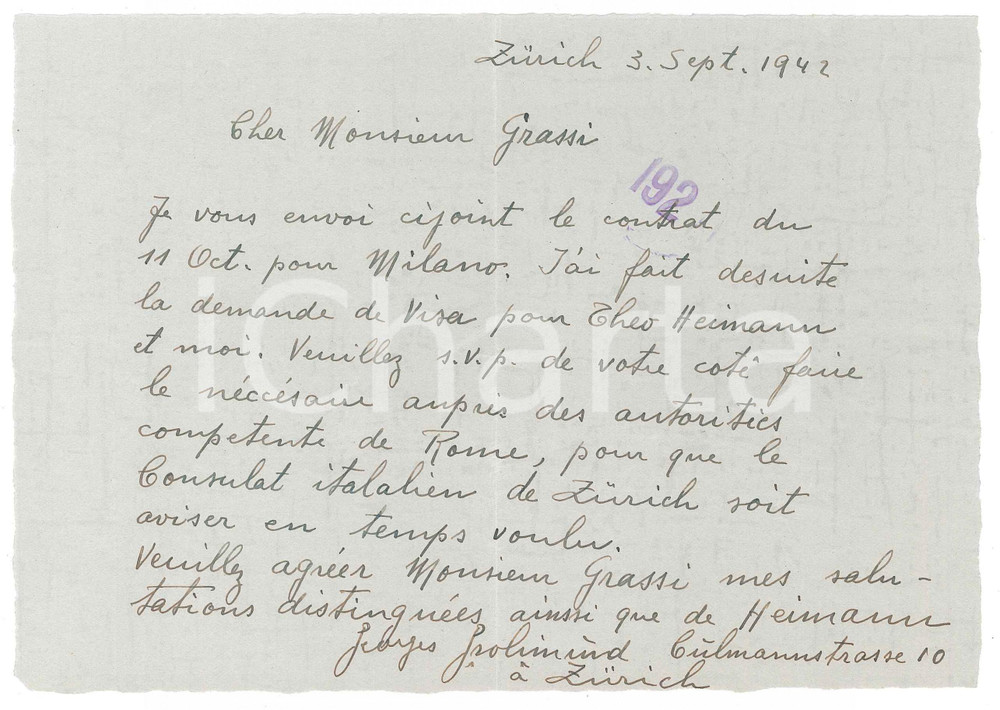 Zürich 3. Sept. 1942
Cher Monsieur Grassi
192
Je vous envoi cijoint le contrat du
11 Oct. pour Milano. J'ai fait desuite
la demande de Visa pour Theo Heimann
et moi. Veuillez s.v.p. de votre coté faire
le néccésaire auprès des autoritées
competente de Rome, pour que le
Consulat italalien de Zürich soit
aviser en temps voulu.
Veuillez agréer Monsieur Grassi mes salu-
tations distinguées ainsi que de Heimann
Georges Grolimünd Cülmannstrasse 10
à Zürich
iCharta